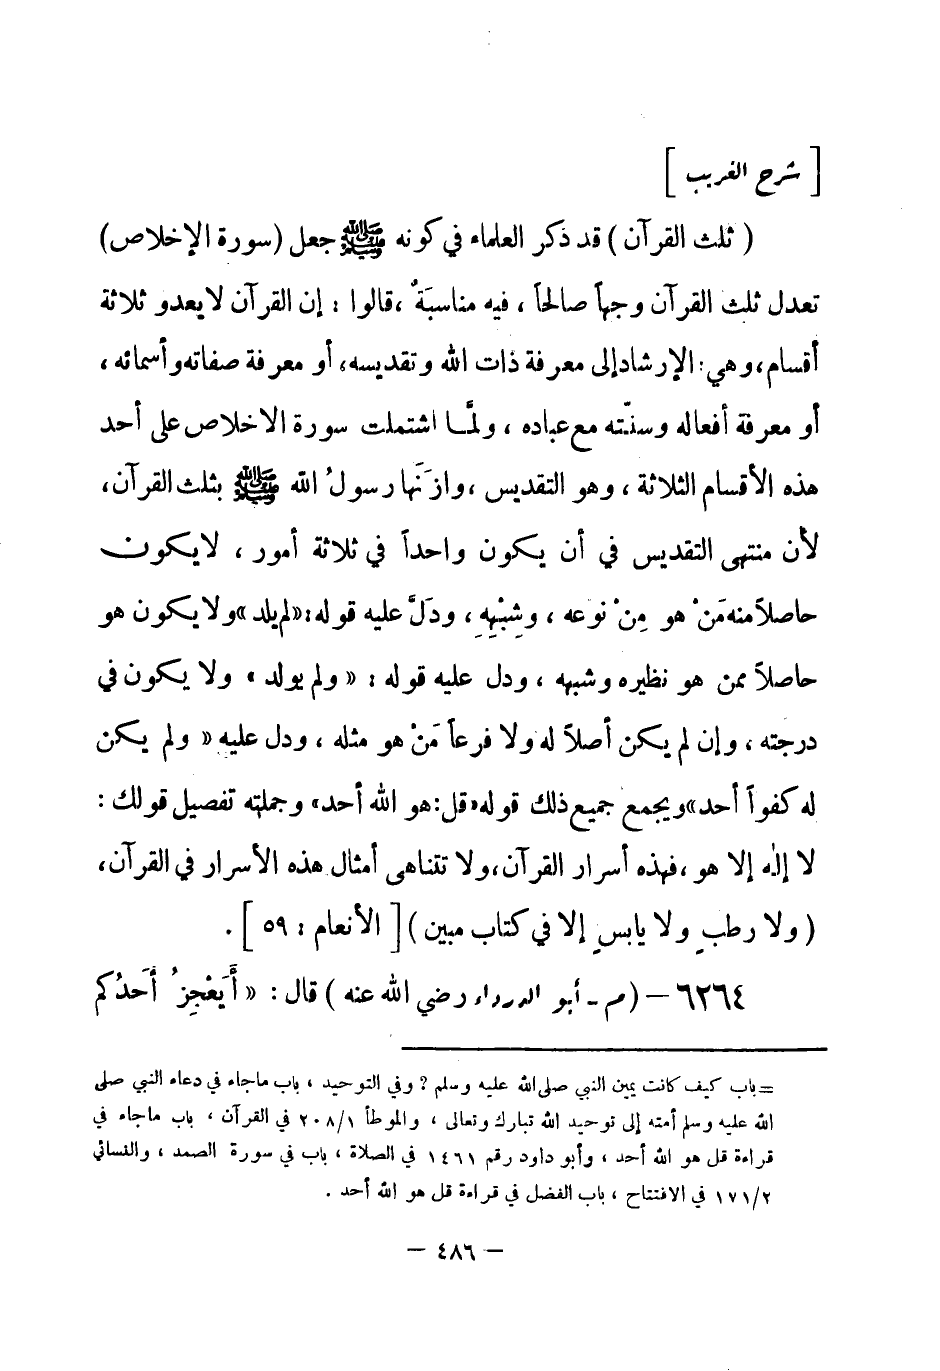 [ شرح الغريب ]
( ثلث القرآن ) قد ذكر العلماء في كونه ﷺ جعل (سورة الإخلاص)
تعدل ثلث القرآن وجهاً صالحاً ، فيه مناسبَةٌ ، قالوا : إن القرآن لا يعدو ثلاثة
أقسام ، وهي : الإرشاد إلى معرفة ذات الله وتقديسه ، أو معرفة صفاته وأسمائه ،
أو معرفة أفعاله وسنّته مع عباده ، ولمَّا اشتملت سورة الاخلاص على أحد
هذه الأقسام الثلاثة ، وهو التقديس ، وازَنَها رسولُ الله ﷺ بثلث القرآن ،
لأن منتهى التقديس في أن يكون واحداً في ثلاثة أمور ، لا يكون
حاصلاً منه مَنْ هو مِنْ نوعه ، وشِبْهِهِ ، ودَلَّ عليه قوله : « لم يلد » ولا يكون هو
حاصلاً ممن هو نظيره وشبهه ، ودل عليه قوله : « ولم يولد » ولا يكون في
درجته ، وإن لم يكن أصلاً له ولا فرعاً مَنْ هو مثله ، ودل عليه « ولم يكن
له كفواً أحد » ويجمع جميع ذلك قوله « قل : هو الله أحد » وجملته تفصيل قولك :
لا إلٰه إلا هو ، فهذه أسرار القرآن ، ولا تتناهى أمثال هذه الأسرار في القرآن ،
( ولا رطبٍ ولا يابسٍ إلا في كتاب مبين ) [ الأنعام : ٥٩ ] .
٦٢٦٤ – ( م - أبو الدرداء رضي الله عنه ) قال : « أَيَعْجِزُ أَحَدُكم
= باب كيف كانت يمين النبي صلى الله عليه وسلم ؟ وفي التوحيد ، باب ماجاء في دعاء النبي صلى
الله عليه وسلم أمته إلى توحيد الله تبارك وتعالى ، والموطأ ٢٠٨/١ في القرآن ، باب ماجاء في
قراءة قل هو الله أحد ، وأبو داود رقم ١٤٦١ في الصلاة ، باب في سورة الصمد ، والنسائي
١٧١/٢ في الافتتاح ، باب الفضل في قراءة قل هو الله أحد .
– ٤٨٦ –